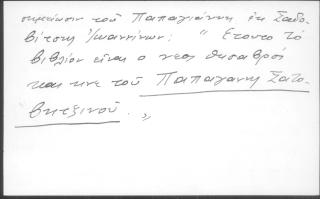 σημείωσιν τοῦ Παπαγιάννη ἐκ Σαδο-
βίτσης Ἰωαννίνων: " Ετουτο τό
βιβλίον εἶναι ο νεος θυσαβρός
και κνε τοῦ Παπαγανη Σατο-
βητζινοῦ. "